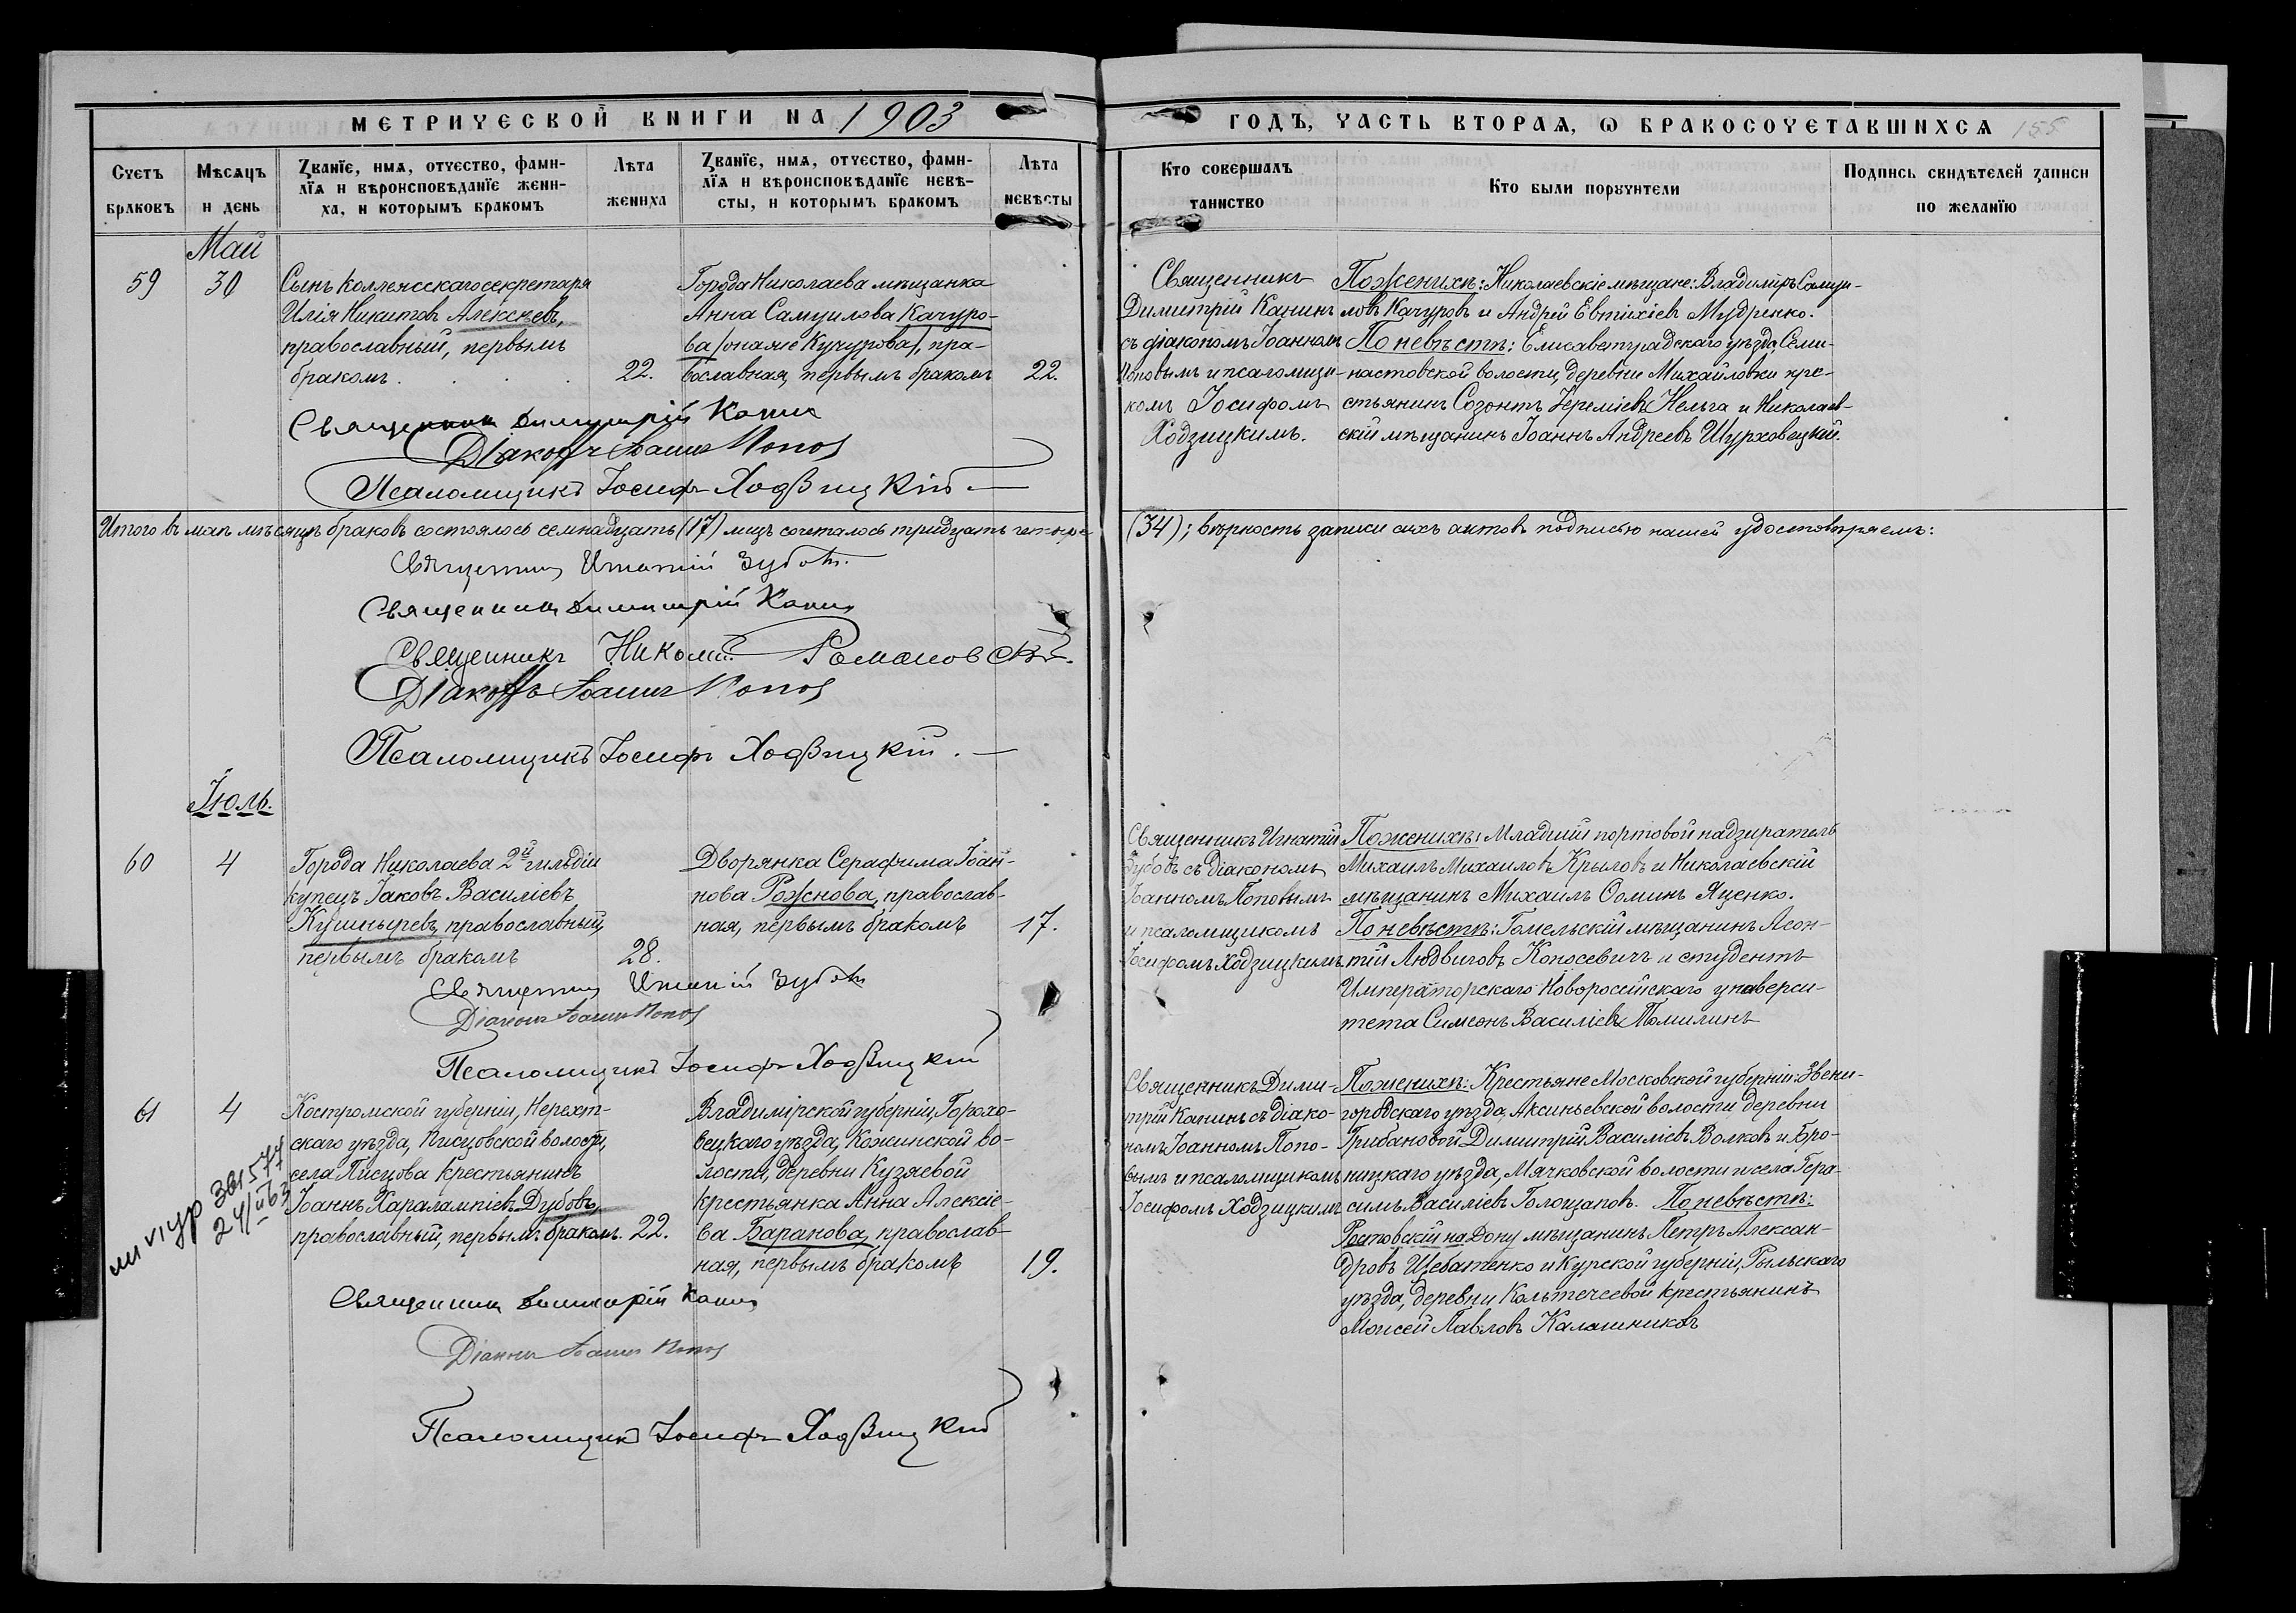 МЕТРИЧЕСКОЙ КНИГИ НА 1903
ГОДЪ, ЧАСТЬ ВТОРАЯ, Ѡ БРАКОСОЧЕТАВШИХСЯ 155
Счетъ браковъ
Мѣсяцъ и день
Званїе, имя, отчество, фами-
лїя и вѣроисповѣданїе жени-
ха, и которымъ бракомъ
Лѣта жениха
Званїе, имя, отчество, фами-
лїя и вѣроисповѣданїе невѣ-
сты, и которымъ бракомъ
Лѣта невѣсты
Кто совершалъ таинство
Кто были поручители
Подпись свидѣтелей записи
по желанїю
Май
59
30
Сынъ коллежскаго секретаря
Илія Никитовъ Алексѣевъ,
православный, первымъ
бракомъ . . . .
22.
Города Николаева мѣщанка
Анна Самуилова Качуро-
ва (онаже Кучурова), пра-
вославная, первымъ бракомъ
22.
Священникъ
Димитрій Канинъ
съ діакономъ Іоанномъ
Поповымъ и псаломщи-
комъ Іосифомъ
Ходзицкимъ.
По женихѣ: Николаевскіе мѣщане: Владиміръ Самуи-
ловъ Качуровъ и Андрей Евтихіевъ Мудренко.
По невѣстѣ: Елисаветградскаго уѣзда, Семи-
настовской волости, деревни Михайловки кре-
стьянинъ Созонтъ Іереміевъ Нельга и Николаев-
скій мѣщанинъ Іоаннъ Андреевъ Шурховецкій.
Священникъ Димитрій Канинъ
Діаконъ Іоаннъ Поповъ
Псаломщикъ Іосифъ Ходзицкій
Итого въ маѣ мѣсяцѣ браковъ состоялось семнадцать (17) лицъ сочеталось тридцать четыре (34); вѣрность записи сихъ актовъ подписью нашей удостовѣряемъ:
Священникъ Игнатій Зубовъ.
Священникъ Димитрій Канинъ
Священникъ Николай Романовскій.
Діаконъ Іоаннъ Поповъ
Псаломщикъ Іосифъ Ходзицкій.
Іюль.
60
4
Города Николаева 2й гильдіи
купецъ Іаковъ Василіевъ
Кушныревъ, православный,
первымъ бракомъ
28.
Дворянка Серафима Іоан-
нова Рожнова, православ-
ная, первымъ бракомъ
17.
Священникъ Игнатій
Зубовъ съ діакономъ
Іоанномъ Поповымъ
и псаломщикомъ
Іосифомъ Ходзицкимъ
По женихѣ: Младшій портовой надзиратель
Михаилъ Михаиловъ Крыловъ и Николаевскій
мѣщанинъ Михаилъ Ѳоминъ Яценко.
По невѣстѣ: Гомельскій мѣщанинъ Леон-
тій Людвиговъ Коносевичъ и студентъ
Императорскаго Новороссійскаго универси-
тета Симеонъ Василіевъ Помилинъ
Священникъ Игнатій Зубовъ
Діаконъ Іоаннъ Поповъ
Псаломщикъ Іосифъ Ходзицкій
61
4
Костромской губерніи, Нерехт-
скаго уѣзда, Писцовской волости,
села Писцова крестьянинъ
Іоаннъ Харалампіевъ Дубовъ,
православный, первымъ бракомъ.
22.
Владимірской губерніи, Горохо-
вецкаго уѣзда, Кожинской во-
лости, деревни Кузяевой
крестьянка Анна Алексіе-
ва Баранова, православ-
ная, первымъ бракомъ
19.
Священникъ Дими-
трій Канинъ съ діако-
номъ Іоанномъ Попо-
вымъ и псаломщикомъ
Іосифомъ Ходзицкимъ
По женихѣ: Крестьяне Московской губерніи: Звени-
городскаго уѣзда, Аксиньевской волости деревни
Грибановой Димитрій Василіевъ Волковъ и Бро-
ницкаго уѣзда, Мячковской волости и села Гера-
симъ Василіевъ Голощаповъ. По невѣстѣ:
Ростовскій на Дону мѣщанинъ Петръ Алексан-
дровъ Щебатенко и Курской губерніи, Рыльскаго
уѣзда, деревни Кольтечеевой крестьянинъ
Моисей Павловъ Калашниковъ
24/II 63
Священникъ Димитрій Канинъ
Діаконъ Іоаннъ Поповъ
Псаломщикъ Іосифъ Ходзицкій